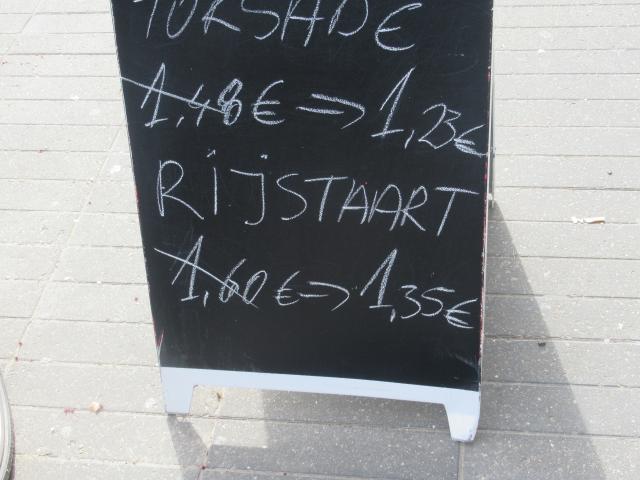 TORSADE
1,48€ => 1,23€
RIJSTAART
1,60€ => 1,35€